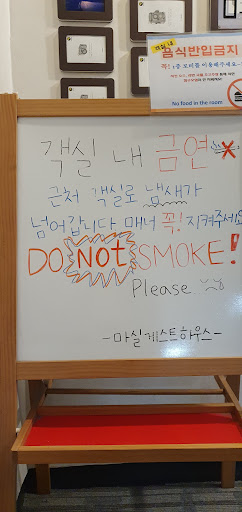 객실 내
음식반입금지
꼭! 1층 로비를 이용해주세요~
No food in the room
객실 내 금연
근처 객실로 냄새가
넘어갑니다 매너 꼭! 지켜주세요
DO Not SMOKE!
Please
-마실게스트하우스-